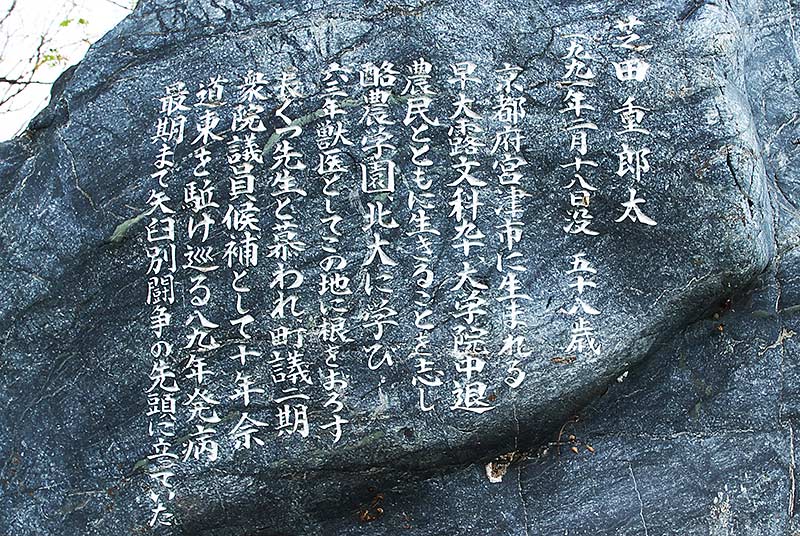 芝田重郎太
一九九一年一月十八日没 五十八歳
京都府宮津市に生まれる
早大露文科卒、大学院中退
農民とともに生きることを志し
酪農学園北大に学び、
六三年獣医としてこの地に根をおろす
長ぐつ先生と慕われ町議二期
衆院議員候補として十年余
道東を駈け巡る八九年発病
最期まで矢臼別闘争の先頭に立っていた